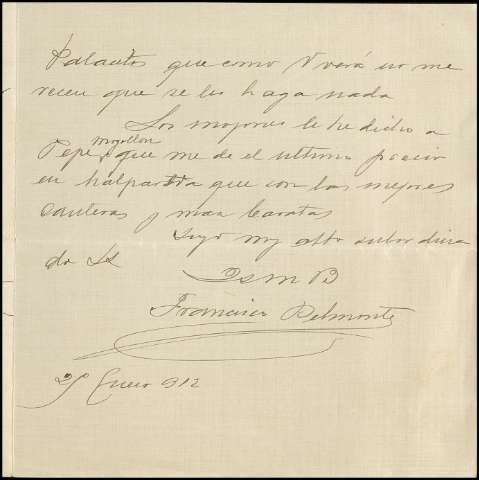 Palautos que como V verá no me
recen que se les haga nada
Los mojones le he dicho a
Mogollon
Pepe que me de el ultimo precio
en Malpartida que son las mejores
canteras y mas baratas
Suyo my atto subordina
do Ss
Qsm B
Francisco Belmonte
Enero 912